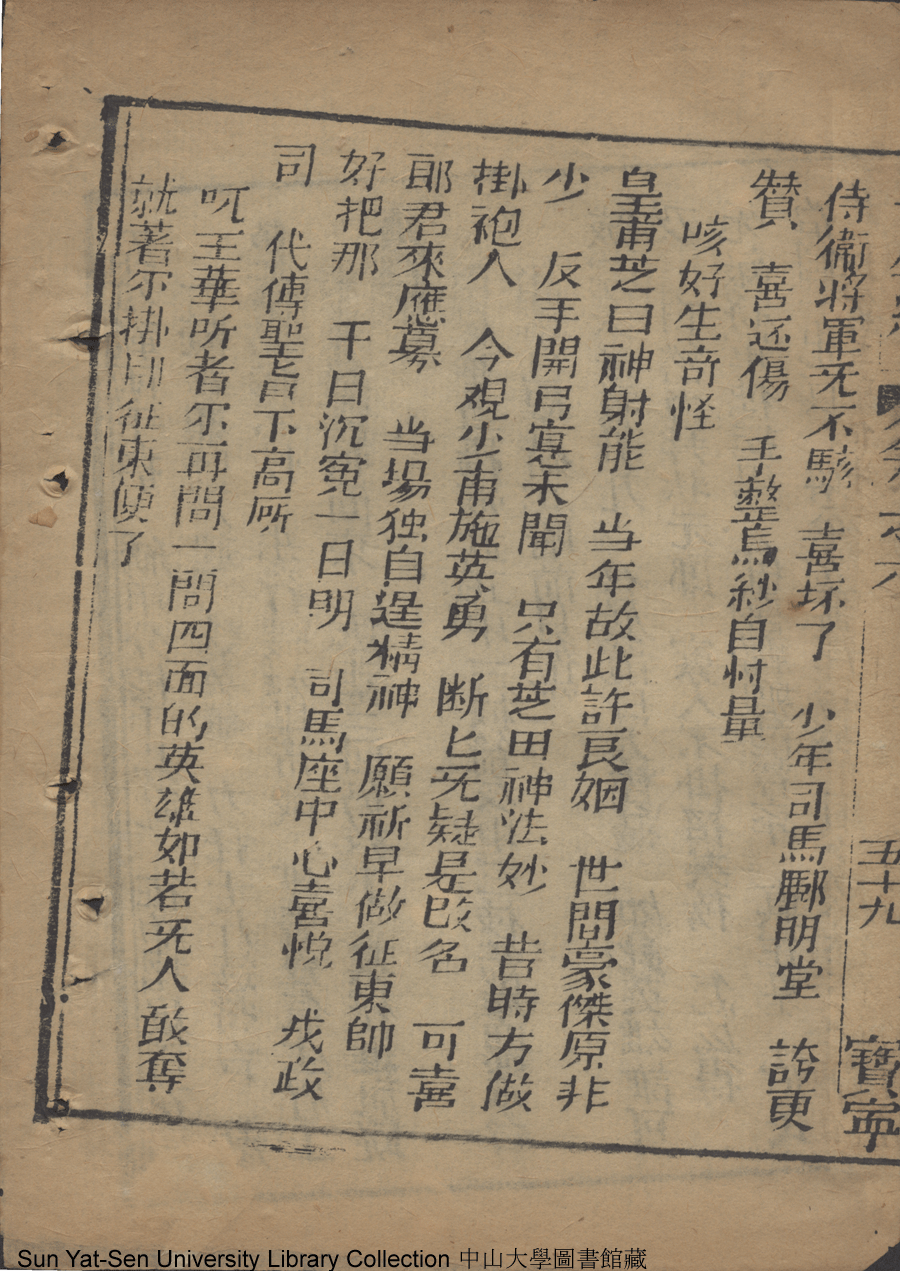 五十九
寶寧
侍衛將軍旡不駭 喜坏了 少年司馬酈明堂 誇更
賛 喜还傷 手整烏紗自忖量
咳好生奇怪
皇甫芝曰神射能 当年故此許良姻 世間豪傑原非
少 反手開弓寔未聞 只有芝田神法妙 昔時方做
掛袍人 今觀少甫施英勇 断匕旡疑是改名 可喜
耶君來應募 当場独自逞精神 願祈早做征東帥
好把那 千日沉寃一日明 司馬座中心喜悅 戎政
司 代傳聖旨下高厛
呒王華听者尔再問一問四面的英雄如若旡人敢奪
就著尔掛印征東便了
Sun Yat-Sen University Library Collection 中山大學圖書館藏